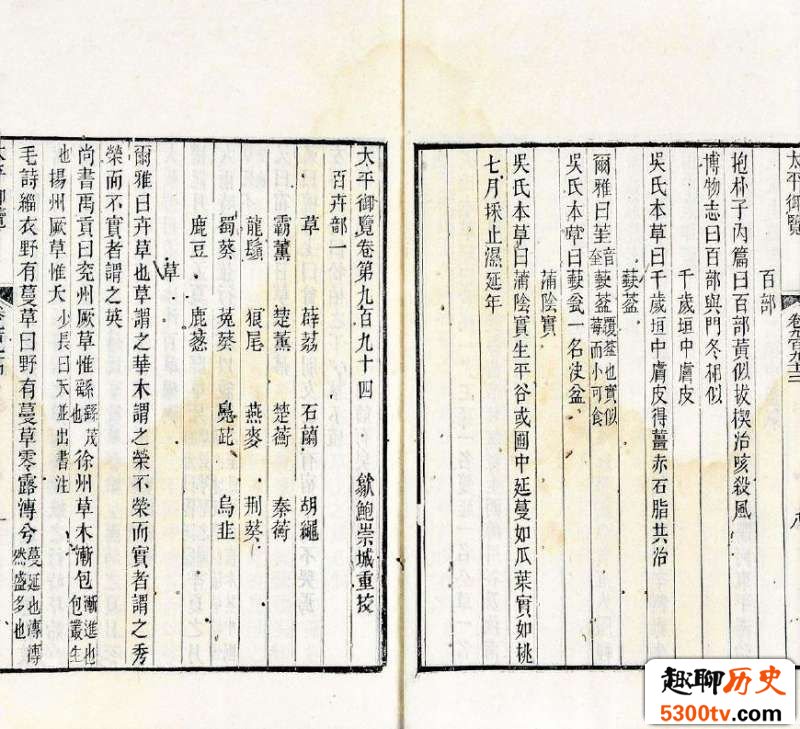 太平御覽
百部
抱朴子內篇曰百部黃似拔楔治咳殺風
博物志曰百部與門冬相似
千歲垣中膚皮
吳氏本草曰千歲垣中膚皮得薑赤石脂共治
蒛葐
爾雅曰茥音奎蒛葐覆葐也實似莓而小可食
吳氏本草曰蒛瓫一名决盆
蒲陰實
吳氏本草曰蒲陰實生平谷或圃中延蔓如瓜葉實如桃
七月採止濕延年
太平御覽卷第九百九十四 歙鮑崇城重校
百卉部一
草 薜荔 石䕞 胡繩
霸薰 楚薰 楚蘅 秦蘅
龍鬚 狼尾 燕麥 荆葵
蜀葵 菟葵 鳧茈 烏韭
鹿豆 鹿蔥
草
爾雅曰卉草也草謂之華木謂之榮不榮而實者謂之秀
榮而不實者謂之英
尚書禹貢曰兖州厥草惟繇繇茂也徐州草木漸包漸進也包叢生
也揚州厥草惟夭少長曰夭並出書注
毛詩緇衣野有蔓草曰野有蔓草零露漙兮蔓延也漙漙然盛多也
太平御覽
趣聊历史
5300tv.com